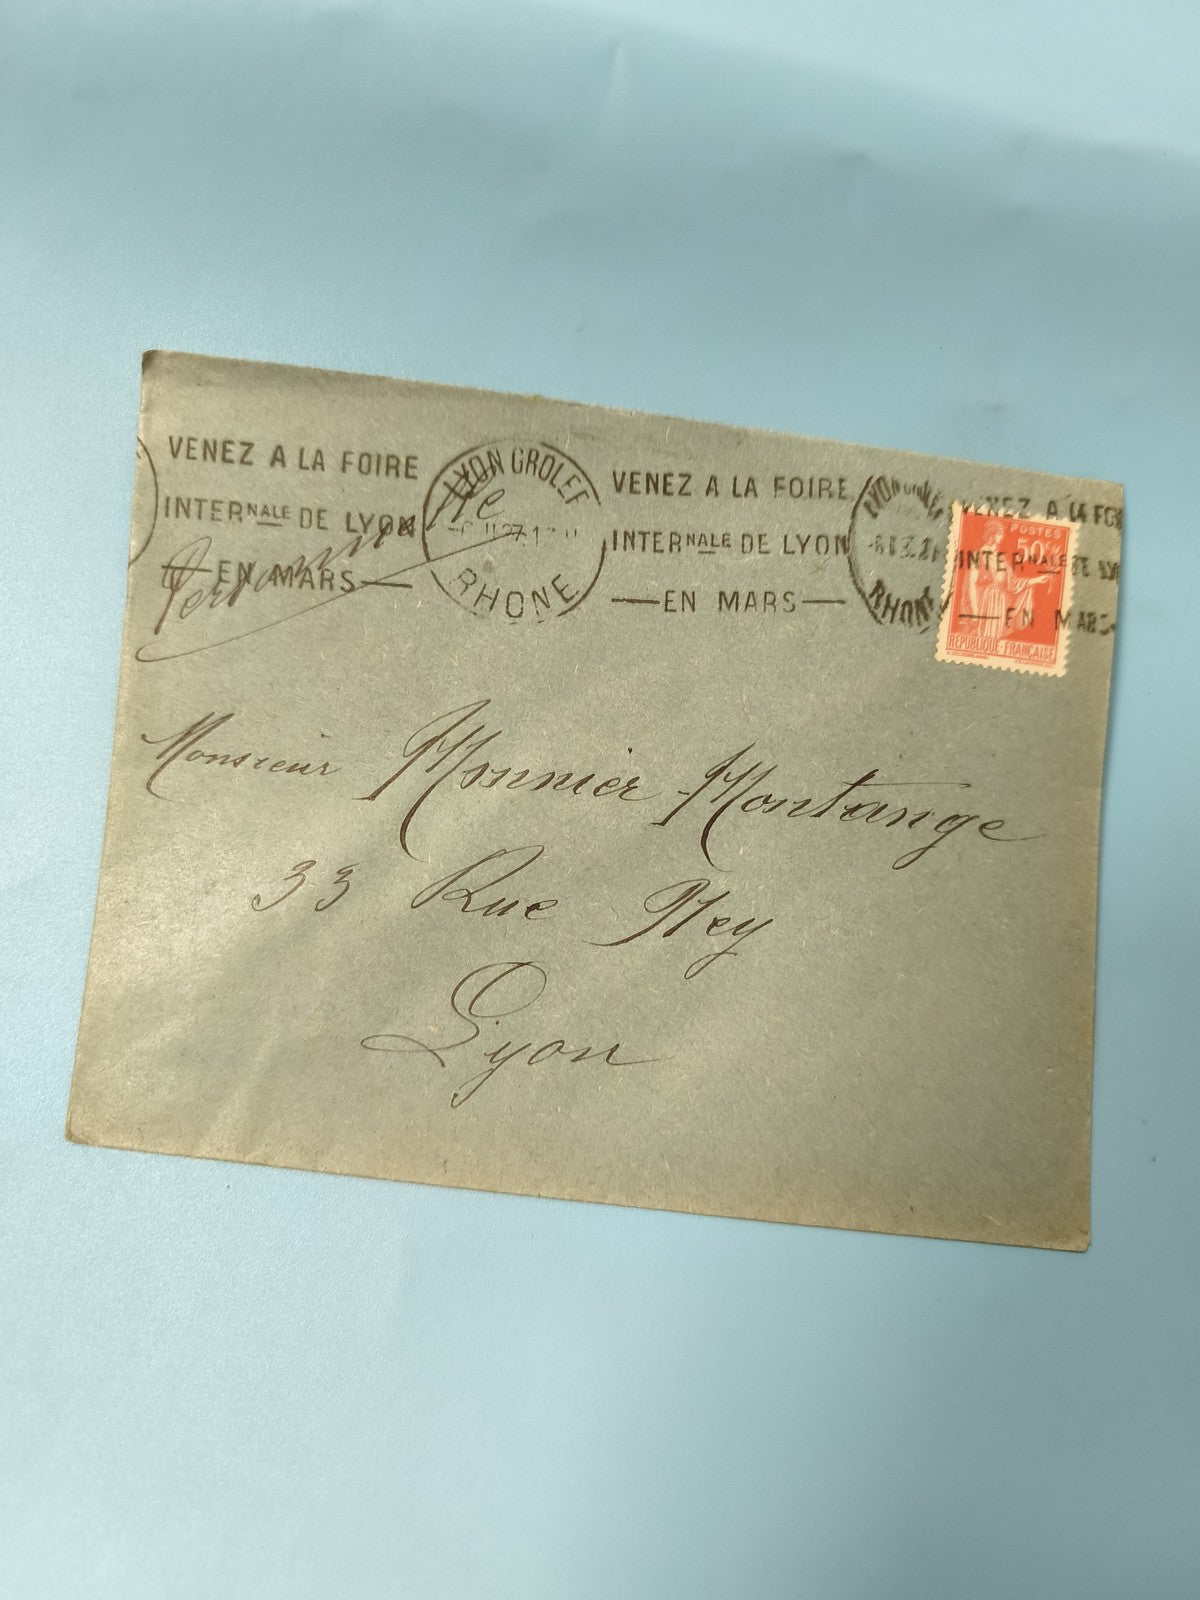 VENEZ A LA FOIRE
INTERNALE DE LYON
— EN MARS —
LYON GROLEE
RHONE
VENEZ A LA FOIRE
INTERNALE DE LYON
— EN MARS —
RHONE
VENEZ A LA FO
INTERNALE DE LY
— EN MARS
POSTES
50c
REPUBLIQUE-FRANÇAISE
Personnelle
Monsieur Monnier-Montange
33 Rue Ney
Lyon